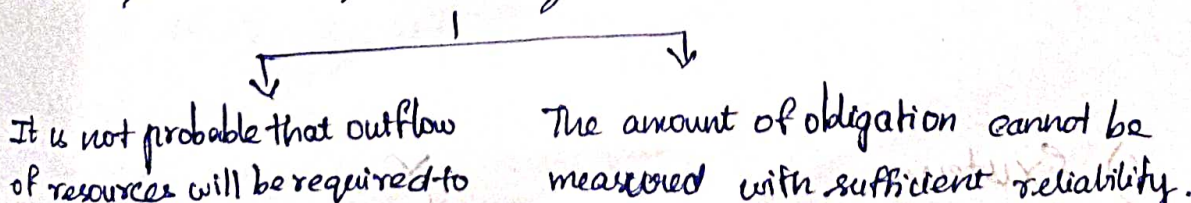 It is not probable that outflow
of resources will be required to
The amount of obligation cannot be
measured with sufficient reliability.